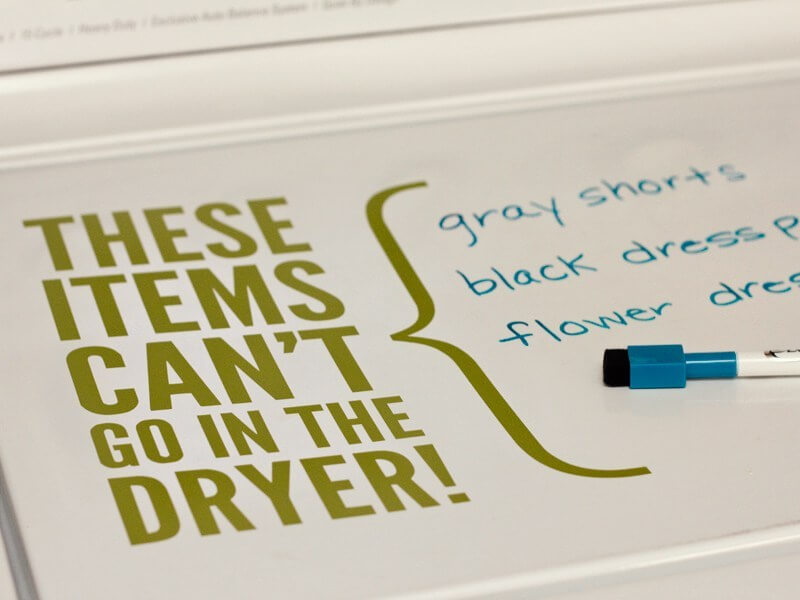 / Heavy Duty / Exclusive Auto Balance System /
THESE
ITEMS
CAN'T
GO IN THE
DRYER!
gray shorts
black dress
flower